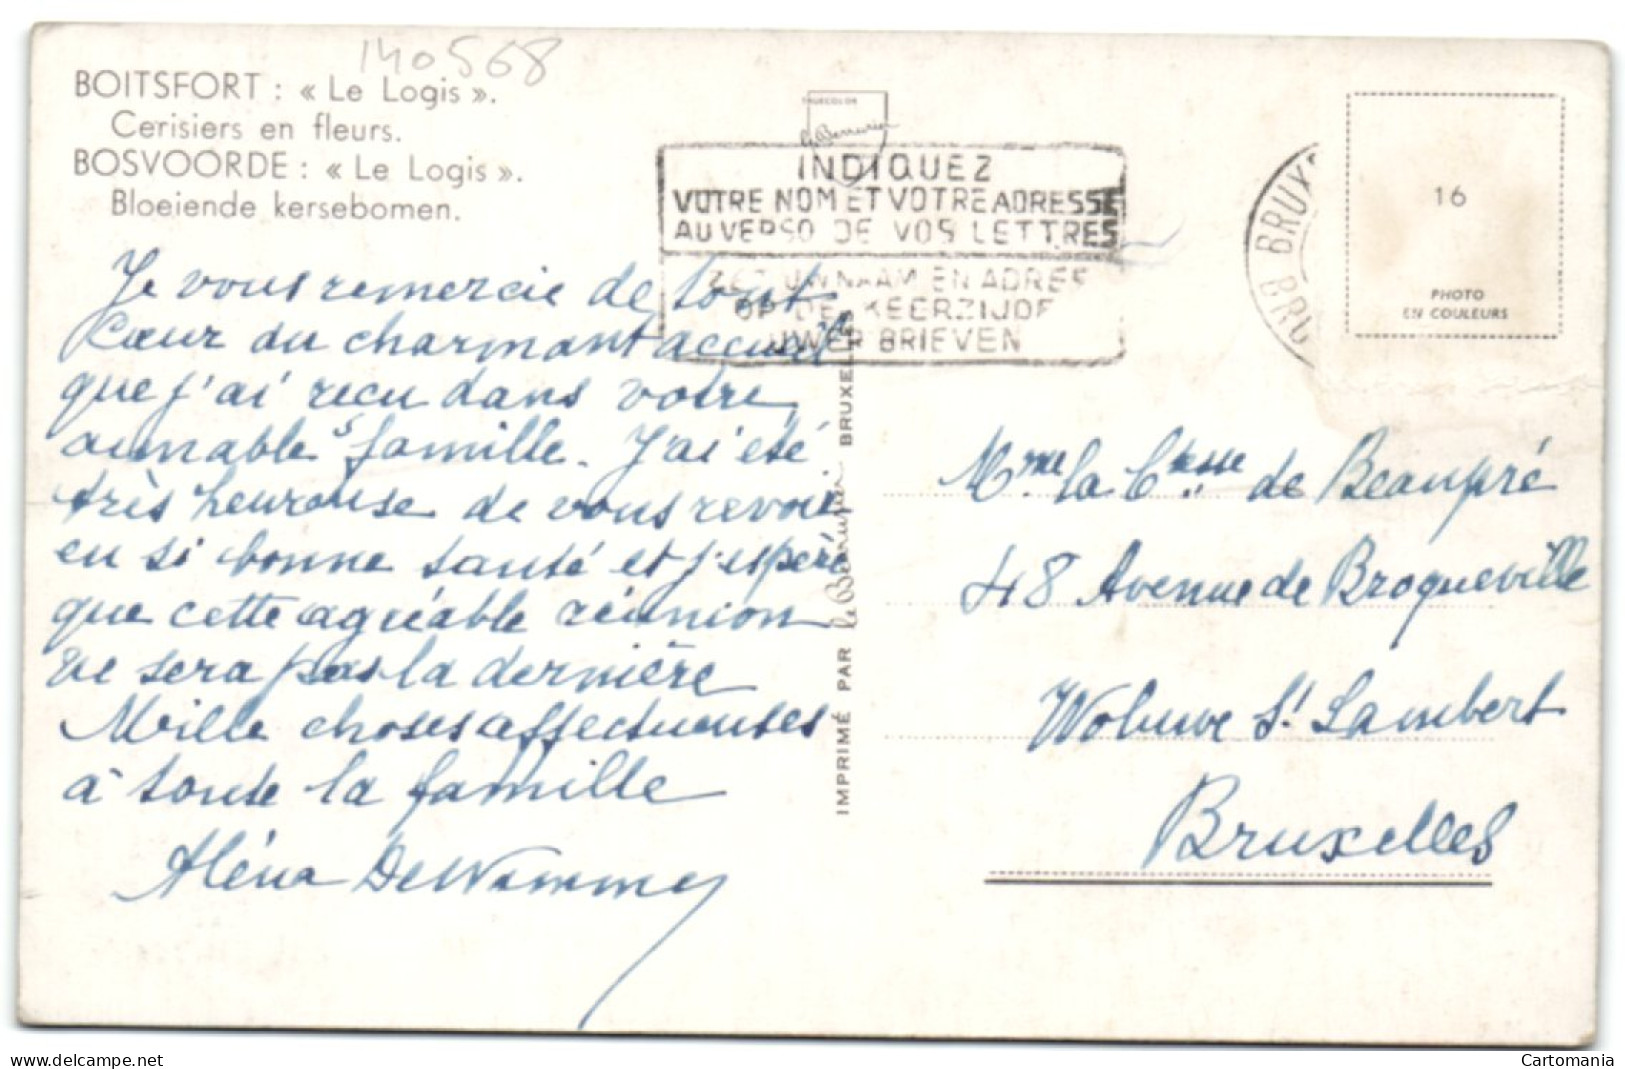 140568
BOITSFORT : « Le Logis ».
Cerisiers en fleurs.
BOSVOORDE : « Le Logis ».
Bloeiende kersebomen.
THUECOLOR
INDIQUEZ
VOTRE NOM ET VOTRE ADRESSE
AU VERSO DE VOS LETTRES
UW NAAM EN ADRES
OP DE KEERZIJDE
UWER BRIEVEN
BRUX
BRU
16
PHOTO
EN COULEURS
Je vous remercie de tout
Cœur du charmant accueil
que j'ai reçu dans votre
aimable famille. J'ai été
très heureuse de vous revoir
en si bonne santé et j'espère
que cette agréable réunion
ne sera pas la dernière
Mille choses affectueuses
à toute la famille
Aléna
IMPRIMÉ PAR le Berrurier BRUXELLES
Mme la Ctesse de Beaupré
48 Avenue de Broqueville
Woluwe St Lambert
Bruxelles
delcampe.net
Cartomania